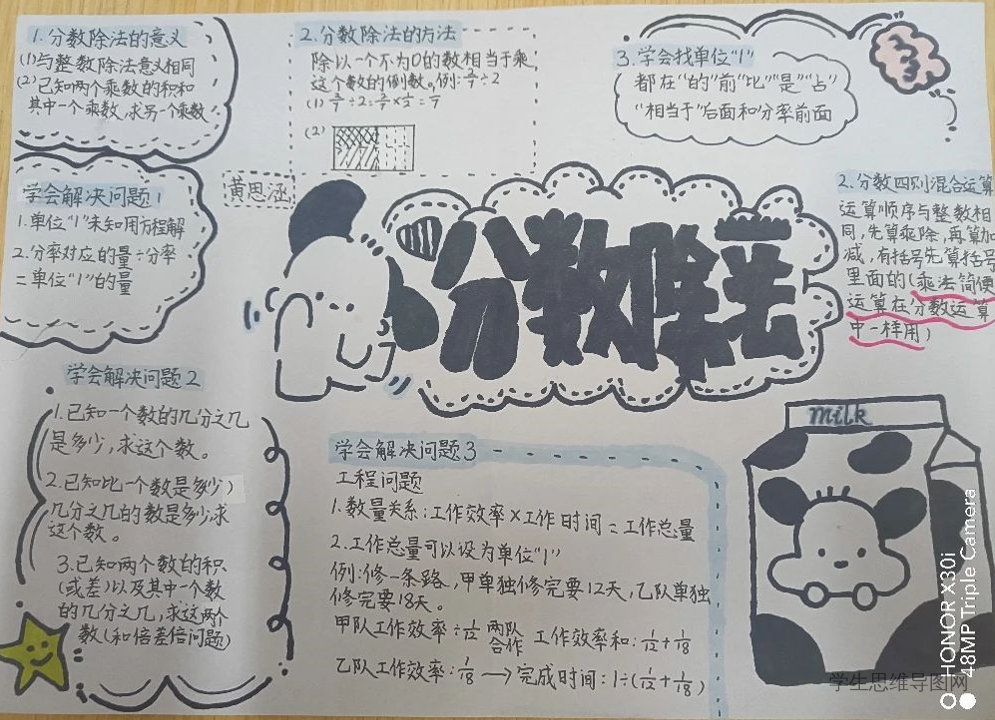 1.分数除法的意义
(1)与整数除法意义相同
(2)已知两个乘数的积和
其中一个乘数,求另一个乘数
2.分数除法的方法
除以一个不为0的数相当于乘
这个数的倒数。例:
(2)
3.学会找单位"1"
都在"的"前"比""是""占"
"相当于"后面和分率前面
学会解决问题1
1.单位"1"未知用方程解
2.分率对应的量÷分率
=单位"1"的量
黄思涵
分数除法
2.分数四则混合运算
运算顺序与整数相
同,先算乘除,再算加
减,有括号先算括号
里面的(乘法简便
运算在分数运算
中一样用)
学会解决问题2
1.已知一个数的几分之几
是多少,求这个数。
2.已知比一个数是多少)
几分之几的数是多少,求
这个数。
3.已知两个数的积
(或差)以及其中一个数
的几分之几,求这两个
数(和倍差倍问题)
学会解决问题3
工程问题
1.数量关系:工作效率×工作时间=工作总量
2.工作总量可以设为单位"1"
例:修一条路,甲单独修完要12天,乙队单独
修完要18天。
甲队工作效率÷1/12 两队合作 工作效率和:1/12+1/18
乙队工作效率:1/18→完成时间:1÷(1/12+1/18)
milk
学生思维导图网
HONOR X30i
48MP Triple Camera